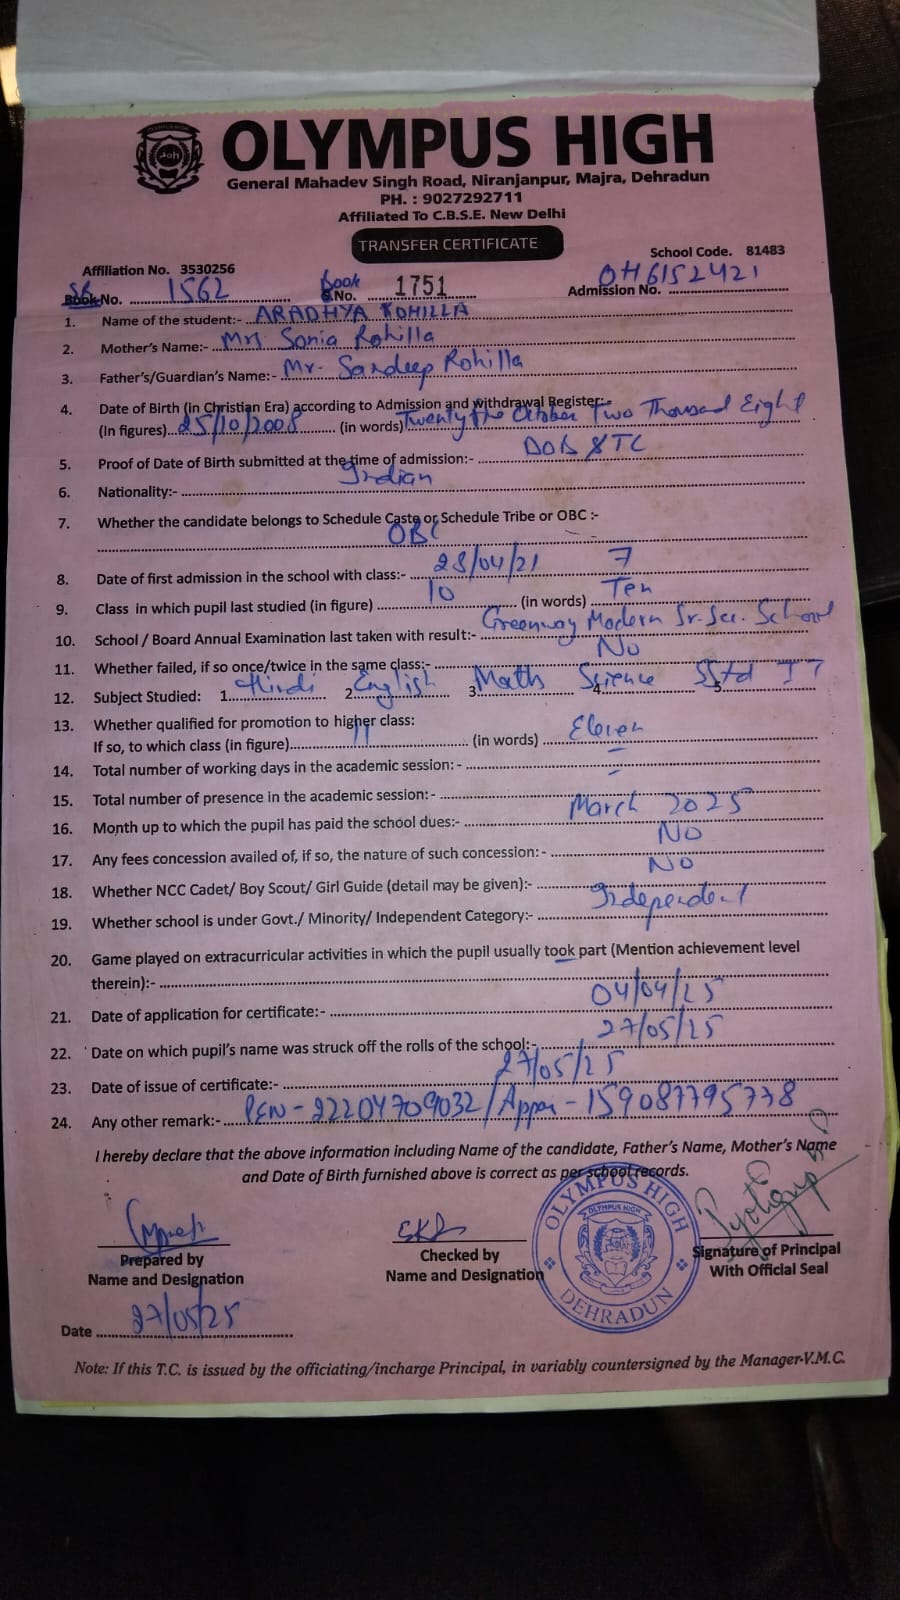 OLYMPUS HIGH
General Mahadev Singh Road, Niranjanpur, Majra, Dehradun
PH. : 9027292711
Affiliated To C.B.S.E. New Delhi
TRANSFER CERTIFICATE
School Code. 81483
Affiliation No. 3530256
SR Book No. 1562 Book S.No. 1751 Admission No. OH6152421
1. Name of the student:- ARADHYA ROHILLA
2. Mother's Name:- Mrs Sonia Rohilla
3. Father's/Guardian's Name:- Mr. Sandeep Rohilla
4. Date of Birth (in Christian Era) according to Admission and withdrawal Register:-
(In figures) 25/10/2008 (in words) Twenty five October Two Thousand Eight
5. Proof of Date of Birth submitted at the time of admission:- DOB & TC
6. Nationality:- Indian
7. Whether the candidate belongs to Schedule Caste or Schedule Tribe or OBC :-
OBC
8. Date of first admission in the school with class:- 28/04/21 7
9. Class in which pupil last studied (in figure) 10 (in words) Ten
10. School / Board Annual Examination last taken with result:- Greenway Modern Sr. Sec. School
11. Whether failed, if so once/twice in the same class:- No
12. Subject Studied: 1 Hindi 2 English 3 Math 4 Science 5 SStd IT
13. Whether qualified for promotion to higher class:
If so, to which class (in figure) 11 (in words) Eleven
14. Total number of working days in the academic session: - –
15. Total number of presence in the academic session:- –
16. Month up to which the pupil has paid the school dues:- March 2025
17. Any fees concession availed of, if so, the nature of such concession:- NO
18. Whether NCC Cadet/ Boy Scout/ Girl Guide (detail may be given):- NO
19. Whether school is under Govt./ Minority/ Independent Category:- Independent
20. Game played on extracurricular activities in which the pupil usually took part (Mention achievement level
therein):-
21. Date of application for certificate:- 04/04/25
22. Date on which pupil's name was struck off the rolls of the school:- 27/05/25
23. Date of issue of certificate:- 27/05/25
24. Any other remark:- PEN - 22204709032 / Appar - 159087795778
I hereby declare that the above information including Name of the candidate, Father's Name, Mother's Name
and Date of Birth furnished above is correct as per school records.
OLYMPUS HIGH
OLYMPUS HIGH
DEHRADUN
Prepared by
Name and Designation
Checked by
Name and Designation
Signature of Principal
With Official Seal
Date 27/05/25
Note: If this T.C. is issued by the officiating/incharge Principal, in variably countersigned by the Manager-V.M.C.